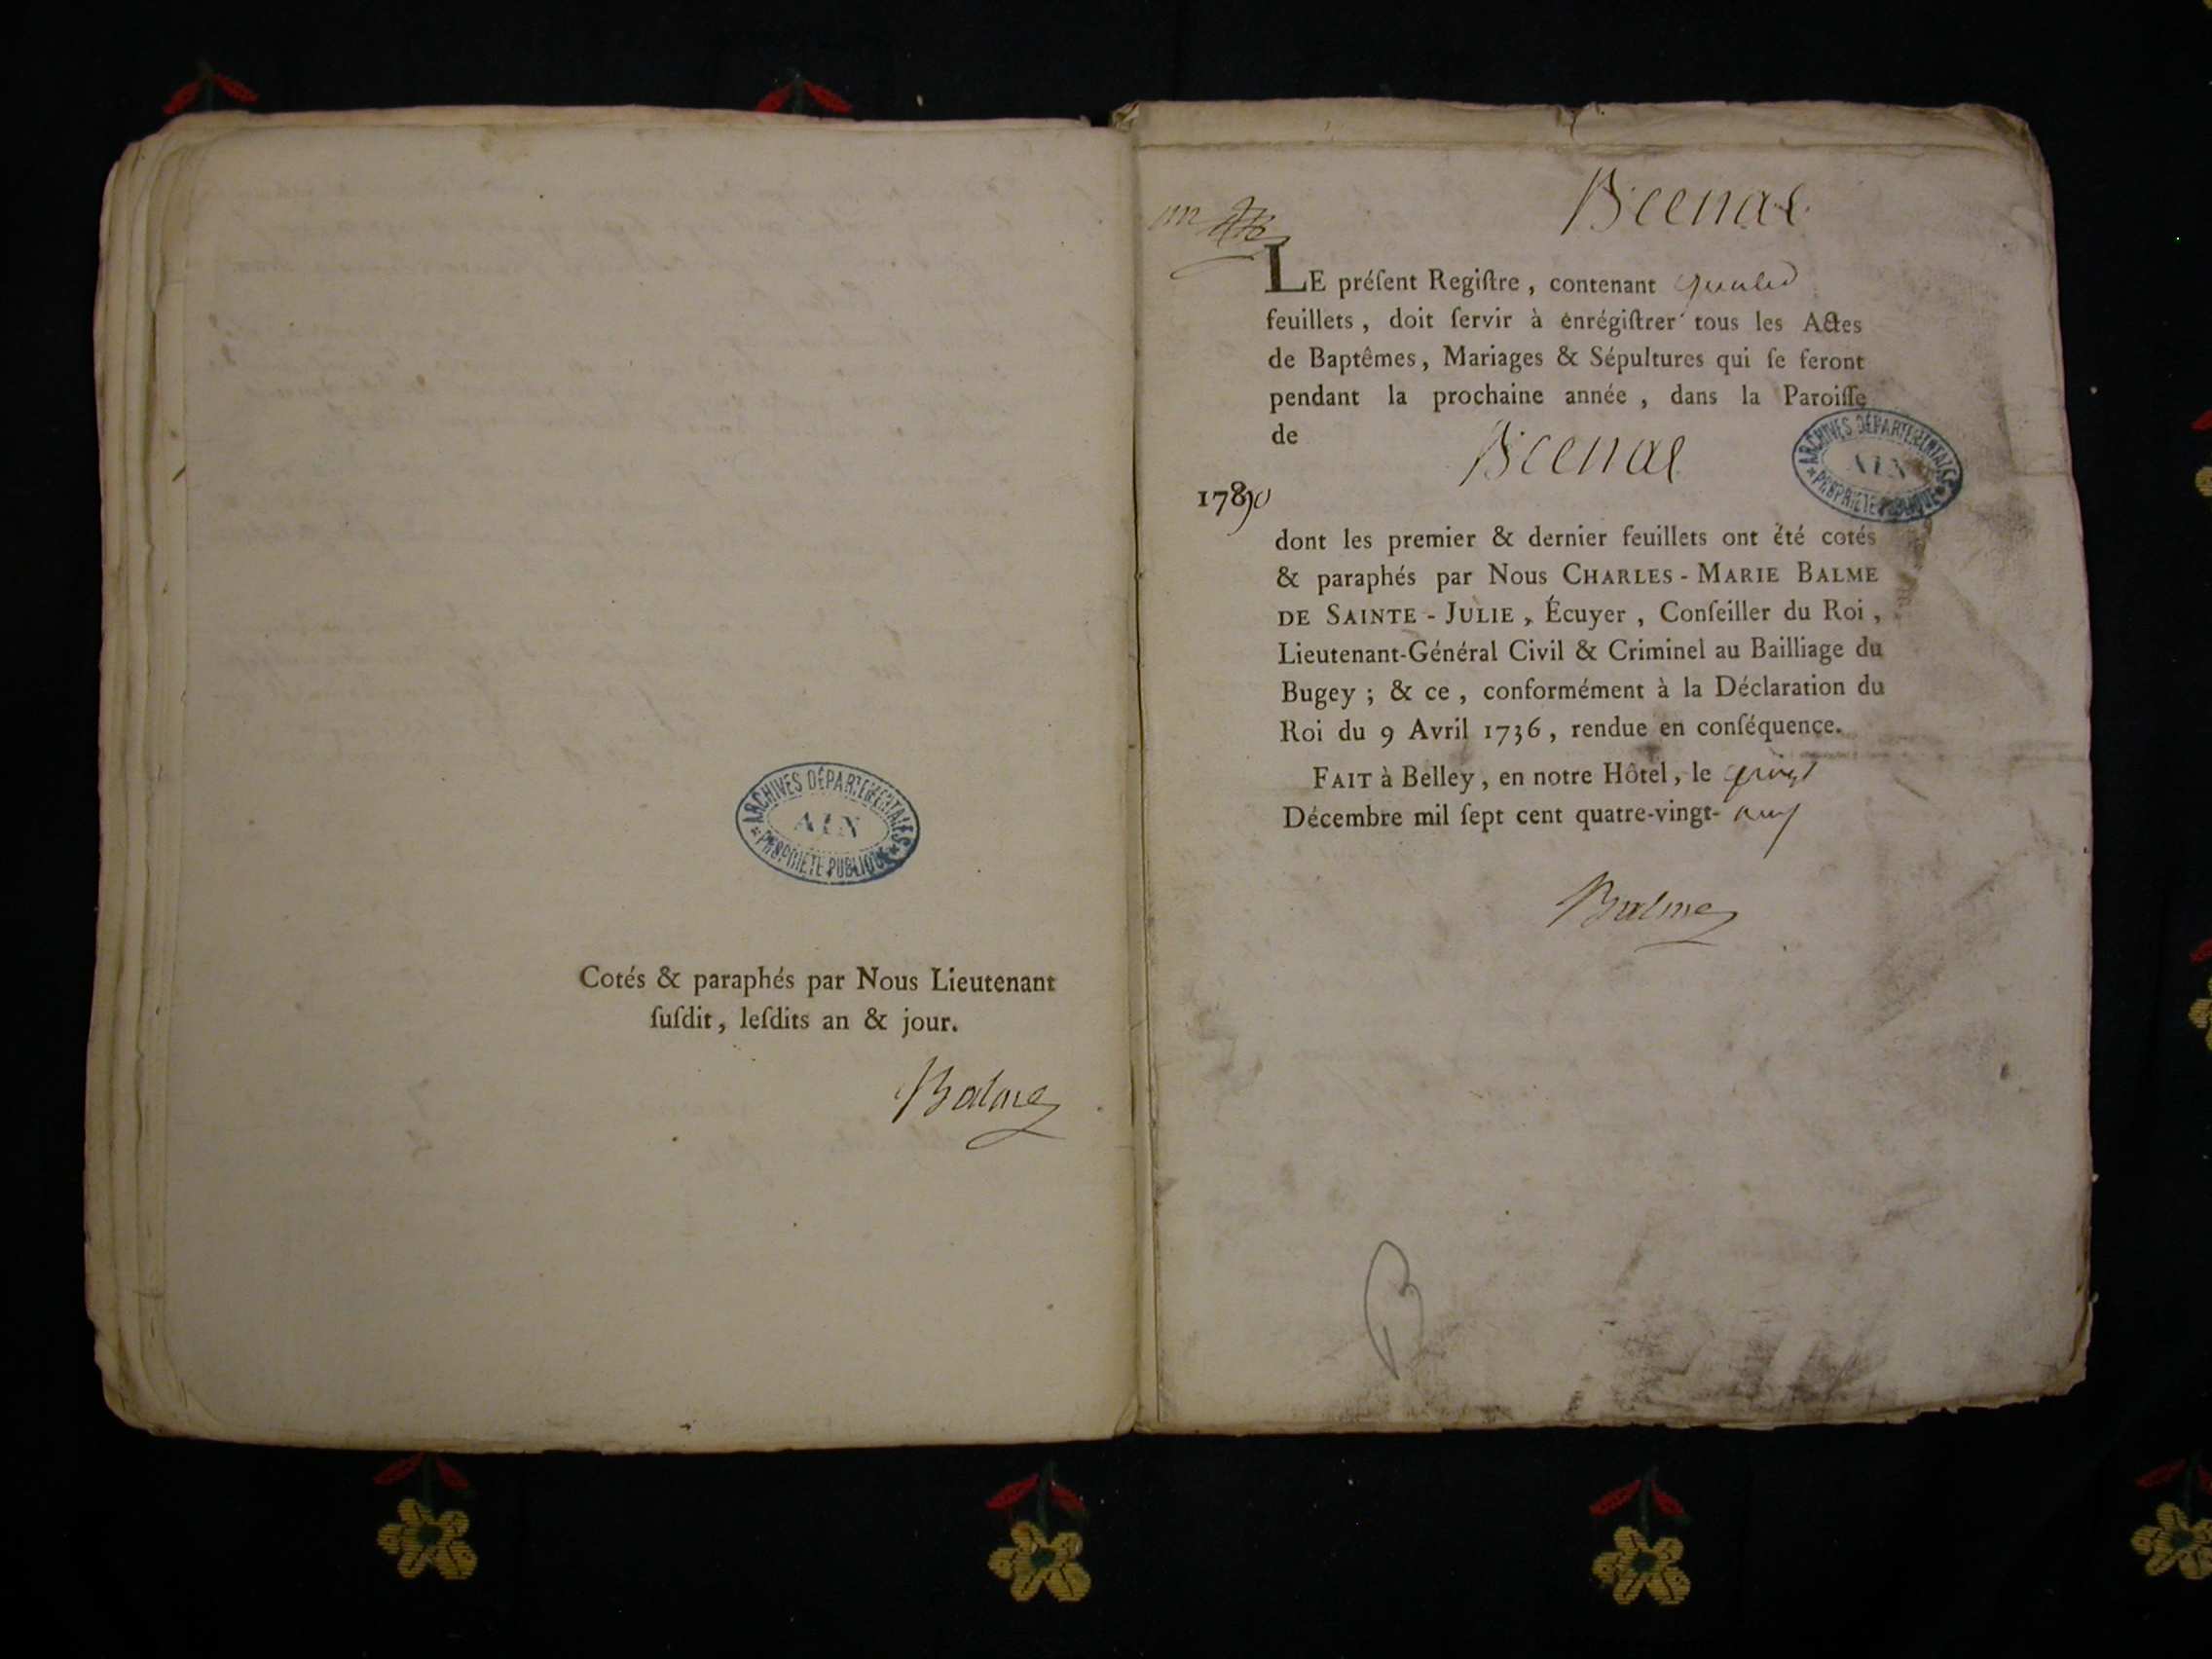 ARCHIVES DÉPARTEMENTALES
AIN
* PROPRIÉTÉ PUBLIQUE *
Cotés & paraphés par Nous Lieutenant
ſuſdit, leſdits an & jour.
Balme
Béénas
LE préſent Regiſtre, contenant
feuillets, doit ſervir à énrégiſtrer tous les Actes
de Baptêmes, Mariages & Sépultures qui ſe feront
pendant la prochaine année, dans la Paroiſſe
de
1790
ARCHIVES DÉPARTEMENTALES
AIN
* PROPRIÉTÉ PUBLIQUE *
dont les premier & dernier feuillets ont été cotés
& paraphés par Nous CHARLES-MARIE BALME
DE SAINTE-JULIE, Écuyer, Conſeiller du Roi,
Lieutenant-Général Civil & Criminel au Bailliage du
Bugey; & ce, conformément à la Déclaration du
Roi du 9 Avril 1736, rendue en conſéquence.
FAIT à Belley, en notre Hôtel, le vingt
Décembre mil ſept cent quatre-vingt-neuf
Balme
B